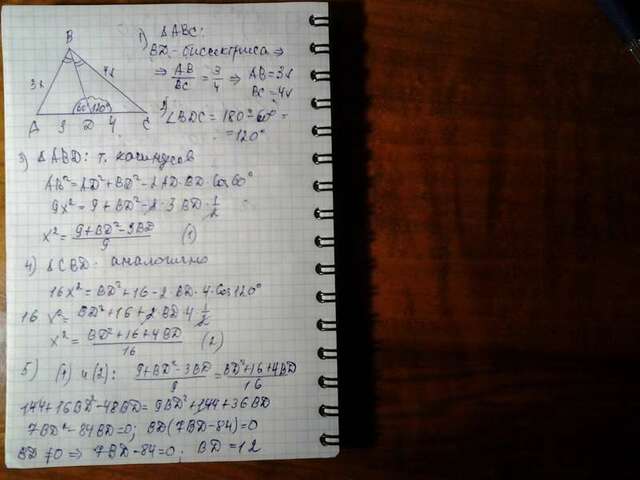 B
3x
4x
60° 120°
A 3 D 4 C
1) ΔABC:
BD - биссектриса ⇒
⇒ AB/BC = 3/4 ⇒ AB = 3x
BC = 4x
2) ∠BDC = 180° - 60° =
= 120°
3) ΔABD: т. косинусов
AB² = AD² + BD² - 2AD·BD·Cos60°
9x² = 9 + BD² - 2·3BD·1/2
x² = (9 + BD² - 3BD)/9 (1)
4) ΔCBD - аналогично
16x² = BD² + 16 - 2·BD·4·Cos120°
16 x² = BD² + 16 + 2BD·4 1/2
x² = (BD² + 16 + 4BD)/16 (2)
5) (1) и (2): (9 + BD² - 3BD)/9 = (BD² + 16 + 4BD)/16
144 + 16BD² - 48BD = 9BD² + 144 + 36BD
7BD² - 84BD = 0; BD(7BD - 84) = 0
BD ≠ 0 ⇒ 7BD - 84 = 0; BD = 12